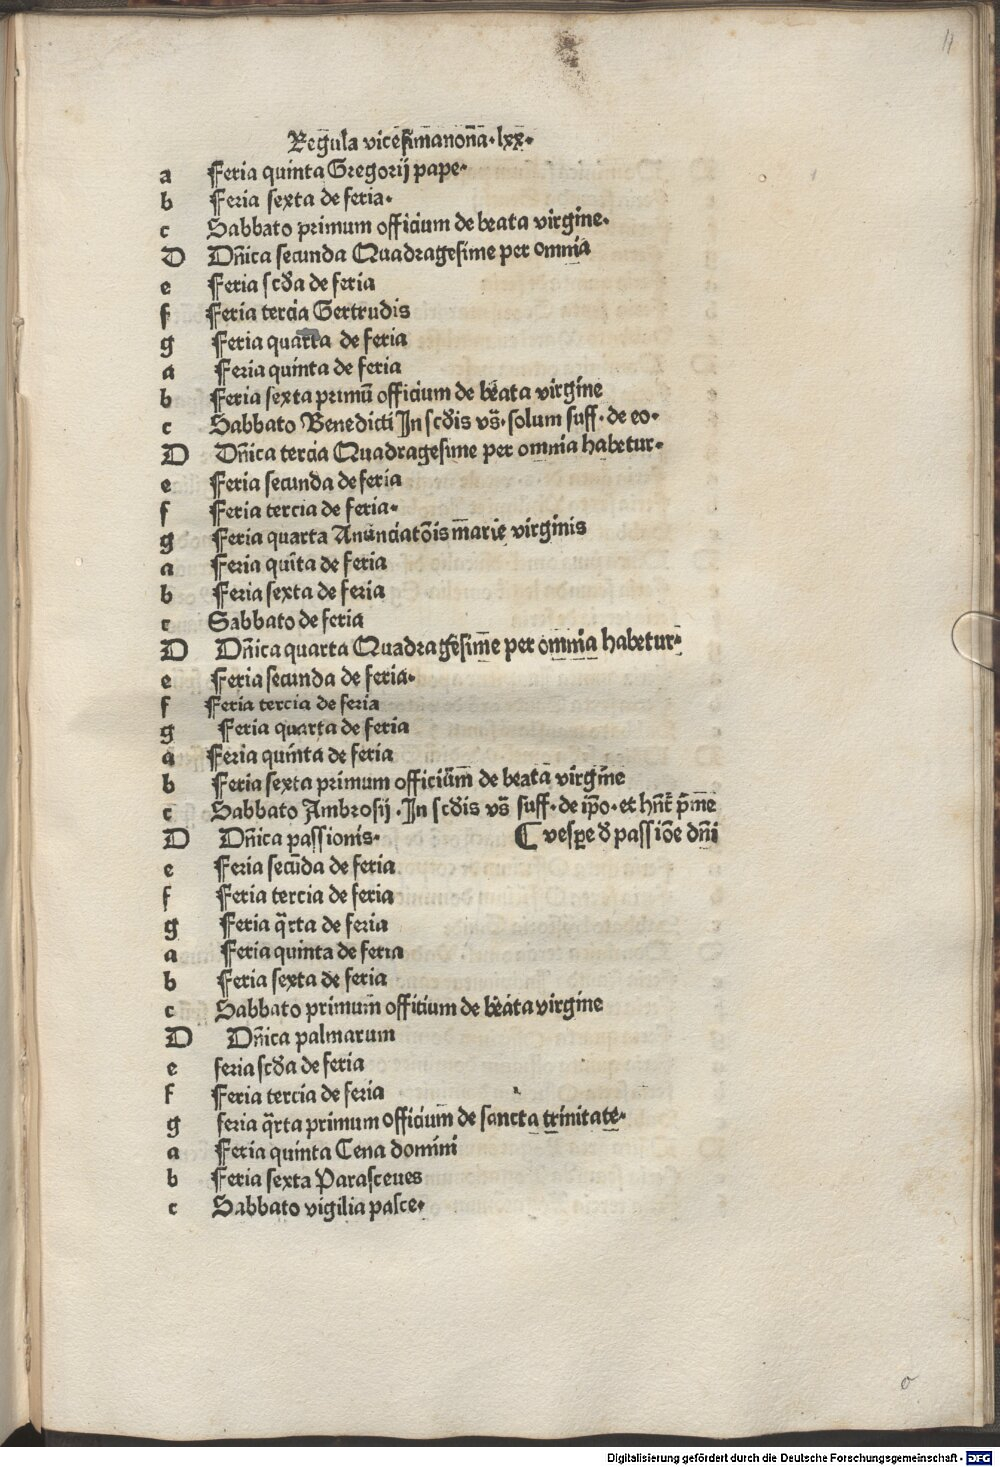 Regula vicesimanona·lxx·
a Feria quinta Gregorij pape·
b Feria sexta de feria·
c Sabbato primum officium de beata virgine·
D Dñica secunda Quadragesime per omnia
e Feria scða de feria
f Feria tercia Gertrudis
g Feria quarta de feria
a Feria quinta de feria
b Feria sexta primū officium de beata virgine
c Sabbato Benedicti In scðis vs̄·solum suff·de eo·
D Dñica tercia Quadragesime per omnia habetur·
e Feria secunda de feria
f Feria tercia de feria·
g Feria quarta Anunciatōis marie virginis
a Feria quīta de feria
b Feria sexta de feria
c Sabbato de feria
D Dñica quarta Quadragesime per omnia habetur·
e Feria secunda de feria·
f Feria tercia de feria
g Feria quarta de feria
a Feria quinta de feria
b Feria sexta primum officium de beata virgine
c Sabbato Ambrosij·In scðis vs̄ suff·de ip̄o·et hn̄t p̄me
D Dñica passionis· ⸿ vespe ð passiōe dñi
e Feria secūda de feria
f Feria tercia de feria
g Feria q̄rta de feria
a Feria quinta de feria
b Feria sexta de feria
c Sabbato primum officium de beata virgine
D Dñica palmarum
e feria scða de feria
f Feria tercia de feria
g feria q̄rta primum officium de sancta trinitate·
a Feria quinta Cena domini
b Feria sexta Parasceues
c Sabbato vigilia pasce·
Digitalisierung gefördert durch die Deutsche Forschungsgemeinschaft - DFG